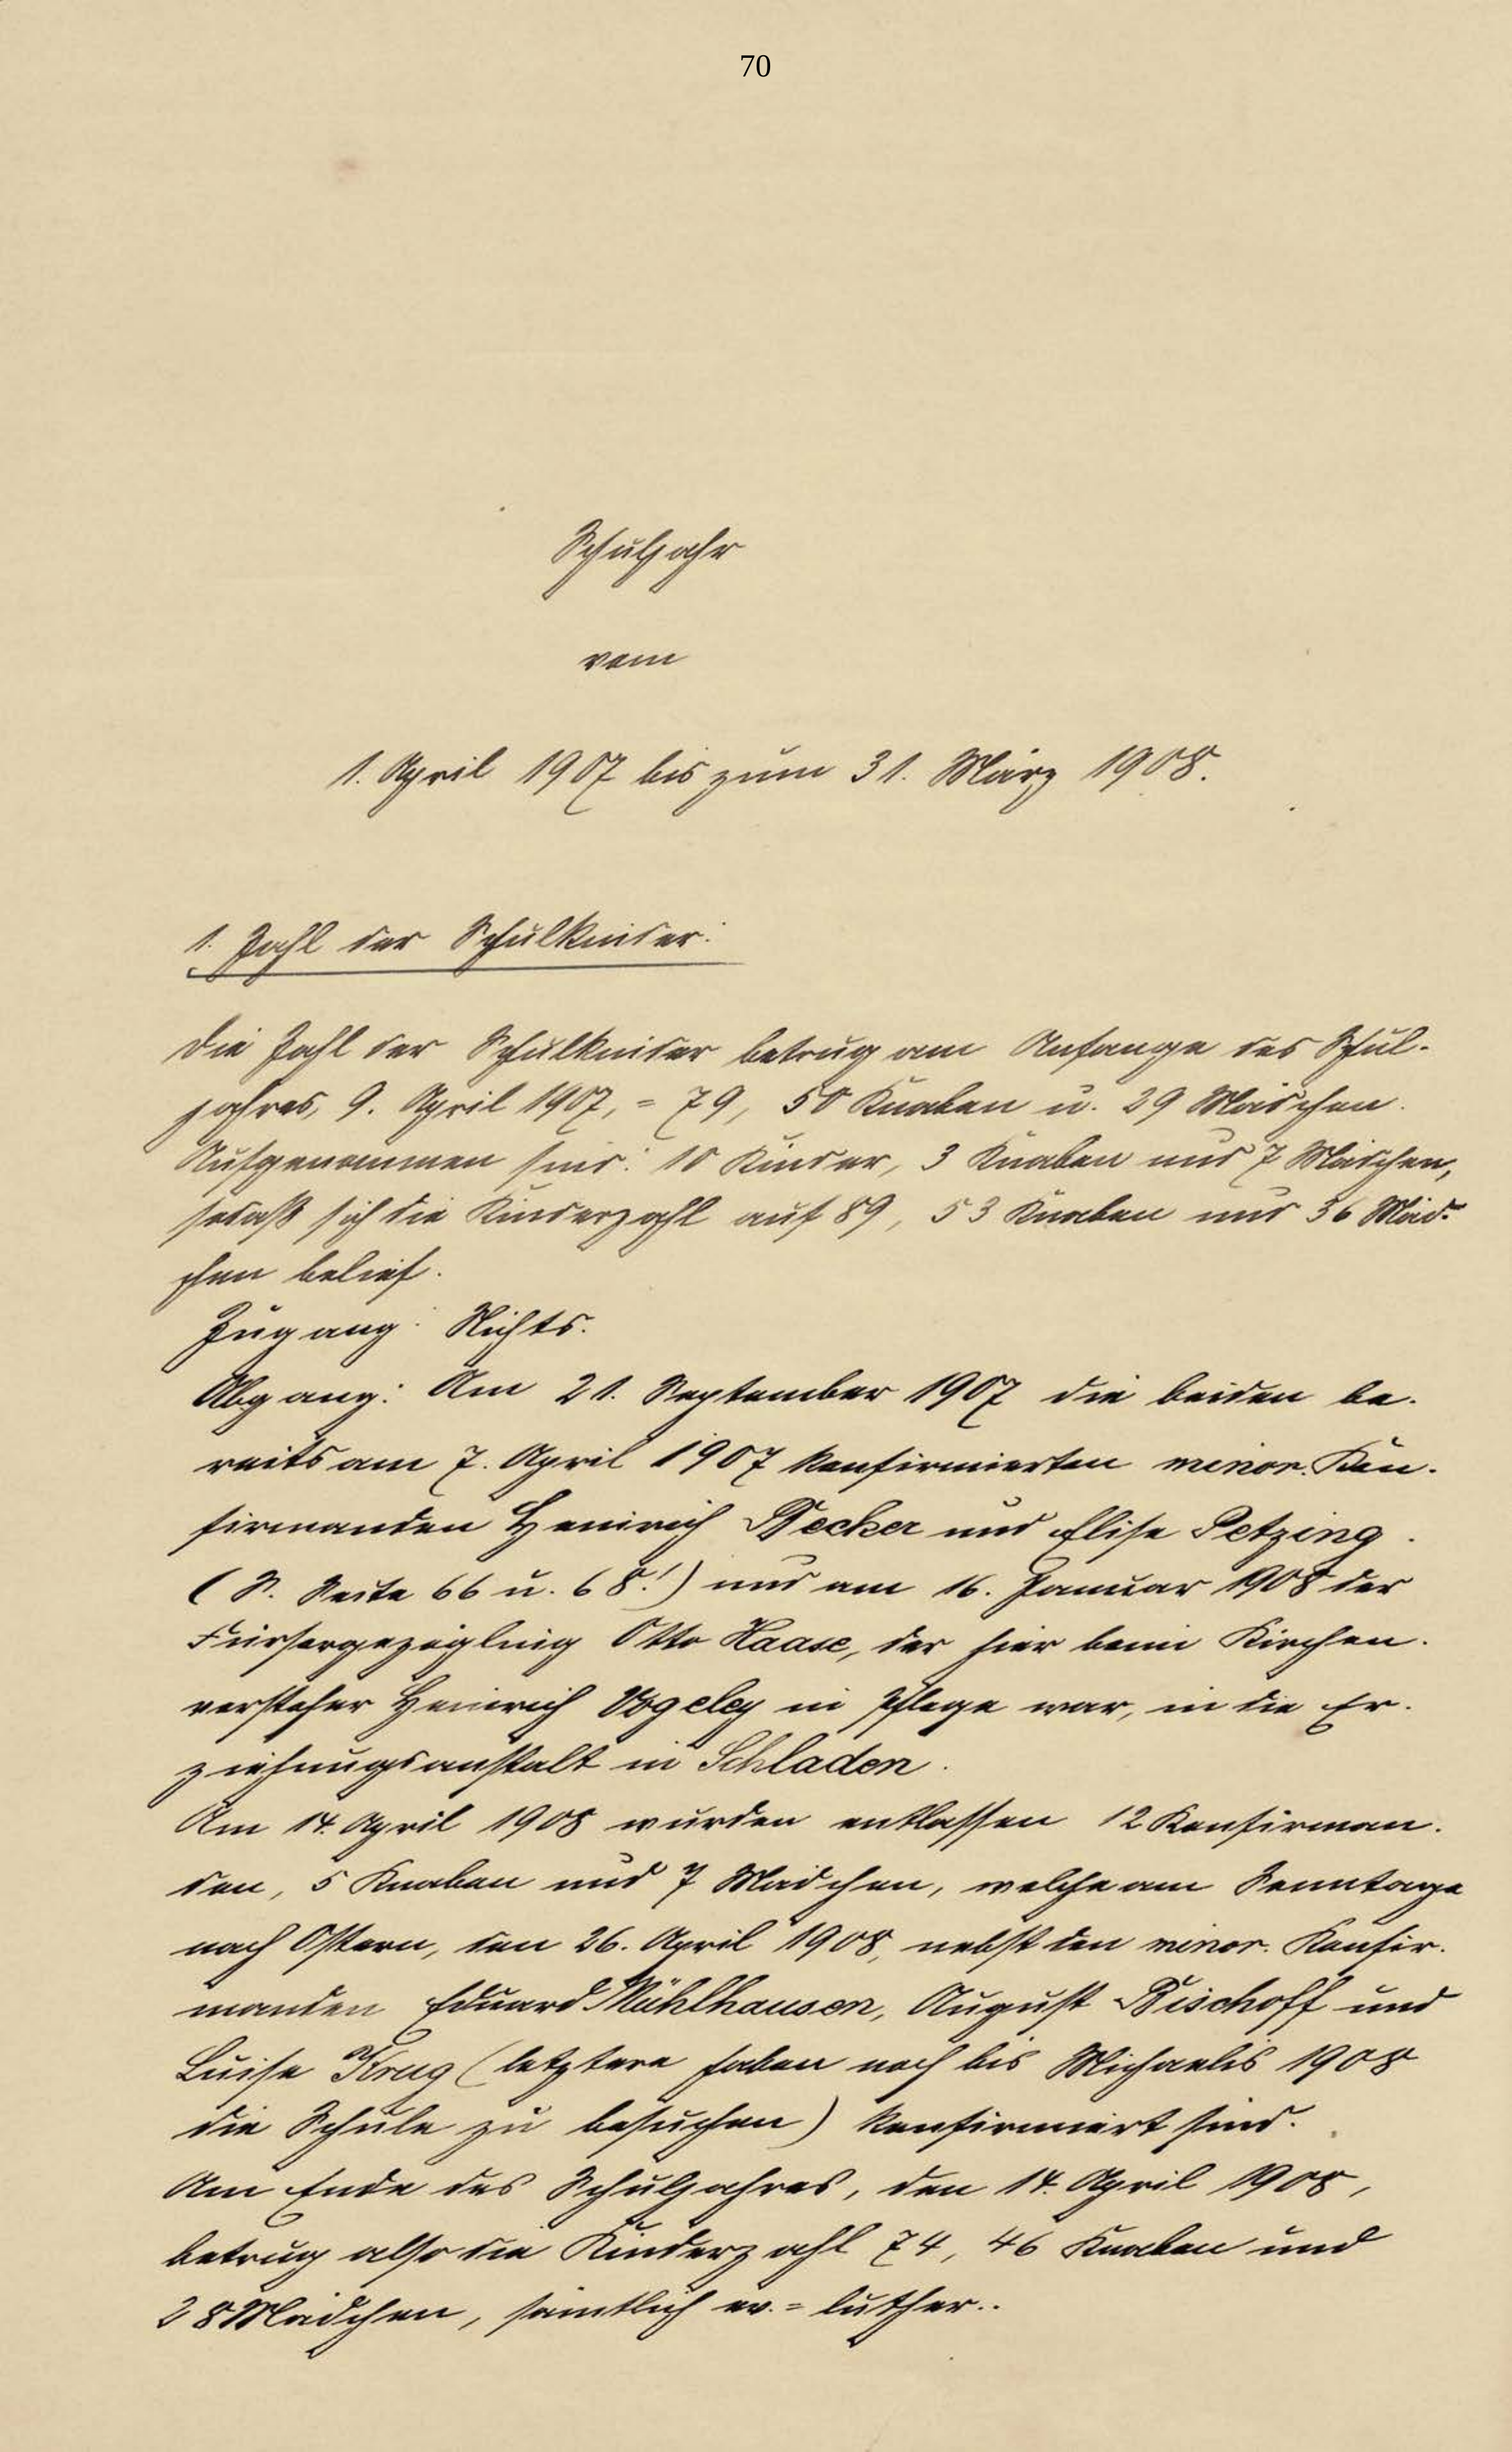 70
Schuljahr
vom
1. April 1907 bis zum 31. März 1908.
1. Zahl der Schulkinder:
Die Zahl der Schulkinder betrug am Anfange des Schul-
jahres, 9. April 1907, = 79, 50 Knaben u. 29 Mädchen.
Aufgenommen sind: 10 Kinder, 3 Knaben und 7 Mädchen,
sodaß sich die Kinderzahl auf 89, 53 Knaben und 36 Mäd-
chen belief.
Zugang: Nichts.
Abgang: Am 21. September 1907 die beiden be-
reits am 7. April 1907 konfirmierten minor. Kon-
firmanden Heinrich Becker und Elise Petzing.
(S. Seite 66 u. 68!) und am 16. Januar 1908 der
Fürsorgezögling Otto Haase, der hier beim Kirchen-
vorsteher Heinrich Vogeley in Pflege war, in die Er-
ziehungsanstalt in Schladen.
Am 14. April 1908 wurden entlassen 12 Konfirman-
den, 5 Knaben und 7 Mädchen, welche am Sonntage
nach Ostern, den 26. April 1908, nebst den minor. Konfir-
manden Eduard Mühlhausen, August Bischoff und
Luise Krug (letztere haben noch bis Michaelis 1908
die Schule zu besuchen) konfirmiert sind.
Am Ende des Schuljahres, den 14. April 1908,
betrug also die Kinderzahl 74, 46 Knaben und
28 Mädchen, sämtlich ev.=luther..